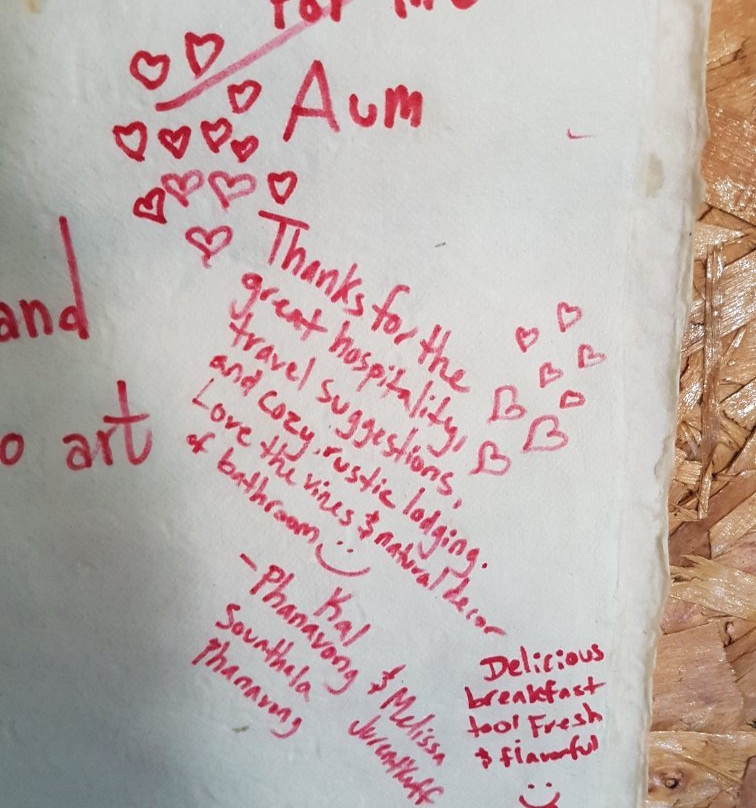 for
Aum
and
o art
Thanks for the
great hospitality,
travel suggestions,
and cozy, rustic lodging.
Love the vines & natural decor
of bathroom
Kal
- Phanavong & Melissa
Souathala
Phanavong
Delicious
breakfast
too! Fresh
& flavorful